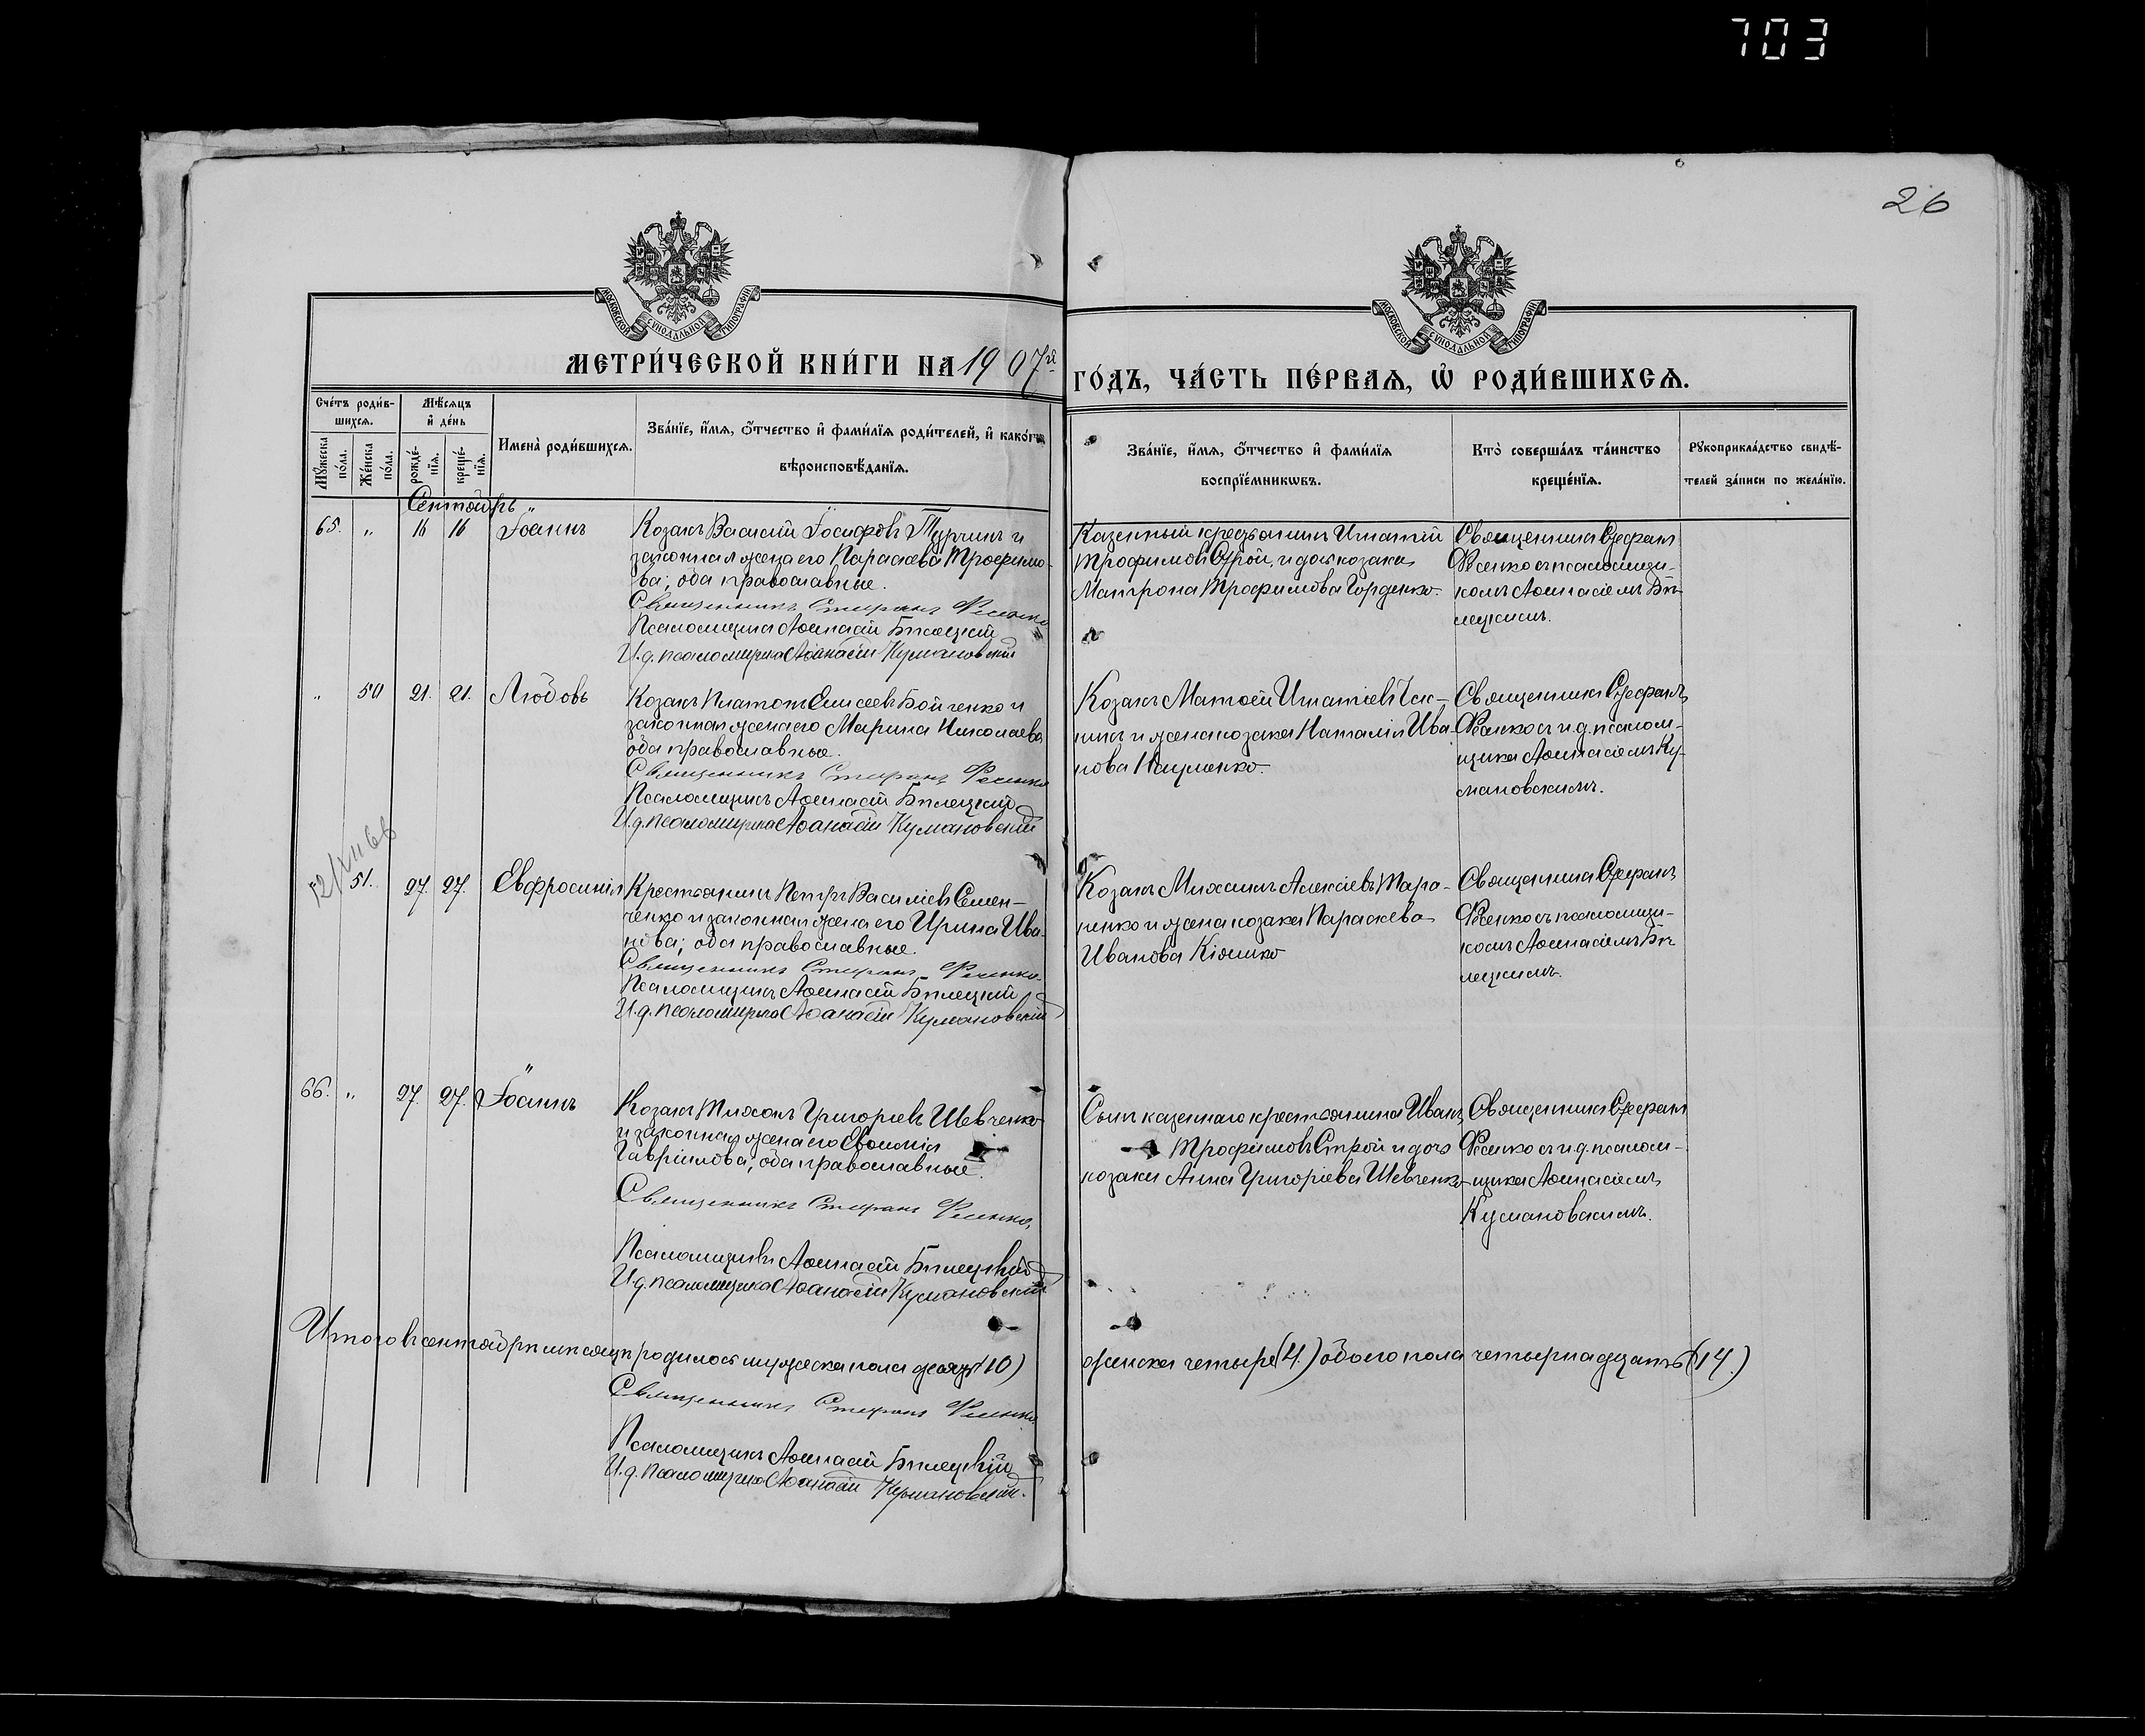 703
26
МОСКОВСКОЙ СѴНОДАЛЬНОЙ ТИПОГРАФІИ
МОСКОВСКОЙ СѴНОДАЛЬНОЙ ТИПОГРАФІИ
МЕТРИ́ЧЕСКОЙ КНИ́ГИ НА 1907й
ГО́ДЪ, ЧА́СТЬ ПЕ́РВАЯ, Ѡ҆ РОДИ́ВШИХСЯ.
Сче́тъ роди́в-
шихся.
Мѣ́сяцъ
и҆ де́нь
Мꙋ́жеска по́ла.
Же́нска по́ла.
рожде́-
нїя.
креще́-
нїя.
Имена̀ роди́вшихся.
Зва́нїе, и҆́мя, ѻ҆́тчество и҆ фами́лїя роди́телей, и҆ како́гѡ
вѣроисповѣ́данїя.
Зва́нїе, и҆́мя, ѻ҆́тчество и҆ фами́лїя
воспрїе́мникѡвъ.
Кто̀ соверша́лъ та́инство
креще́нїя.
Рꙋкоприкла́дство свидѣ́-
телей за́писи по жела́нїю.
Сентябрь
65. " 16 16 Іоаннъ
Козакъ Василій Іосифовъ Турчинъ и
законная жена его Параскева Трофимо-
ва; оба православные.
Священникъ Стефанъ Фесенко
Псаломщикъ Аѳанасій Бѣлецкій
И.д. псаломщика Аѳанасій Кумановскій
Казенный крестьянинъ Игнатій
Трофимовъ Строй, и дочь козака
Матрона Трофимова Горденко.
Священникъ Стефанъ
Фесенко съ псаломщи-
комъ Аѳанасіемъ Бѣ-
лецкимъ.
" 50 21. 21. Любовь
Козакъ Платонъ Елисеевъ Бойченко и
законная жена его Марина Николаева,
оба православные.
Священникъ Стефанъ Фесенко
Псаломщикъ Аѳанасій Бѣлецкій
И.д. псаломщика Аѳанасій Кумановскій
Козакъ Матѳей Игнатіевъ
и жена козака Наталія Ива-
нова Науменко.
Священникъ Стефанъ
Фесенко съ и.д. псалом-
щика Аѳанасіемъ Ку-
мановскимъ.
51. 27. 27. Евфросинія
Крестьянинъ Петръ Василіевъ Семен-
ченко и законная жена его Ирина Ива-
нова; оба православные.
Священникъ Стефанъ Фесенко.
Псаломщикъ Аѳанасій Бѣлецкій
И.д. псаломщика Аѳанасій Кумановскій
Козакъ Михаилъ Алексіевъ Тара-
ненко и жена козака Параскева
Иванова Кіяшко
Священникъ Стефанъ
Фесенко съ псаломщи-
комъ Аѳанасіемъ Бѣ-
лецкимъ.
66. " 27. 27. Іоаннъ
Козакъ Тихонъ Григоріевъ Шевченко
и законная жена его Евѳимія
Гавріилова; оба православные.
Священникъ Стефанъ Фесенко,
Псаломщикъ Аѳанасій Бѣлецкій
И.д. псаломщика Аѳанасій Кумановскій
Сынъ казеннаго крестьянина Иванъ
Трофимовъ Строй и дочь
козака Анна Григоріева Шевченко
Священникъ Стефанъ
Фесенко съ и.д. псалом-
щика Аѳанасіемъ
Кумановскимъ.
Итого въ сентябрѣ мѣсяцѣ родилось мужеска пола десять (10)
женска четыре (4.) обоего пола четырнадцать (14.)
Священникъ Стефанъ Фесенко.
Псаломщикъ Аѳанасій Бѣлецкій
И.д. псаломщика Аѳанасій Кумановскій.